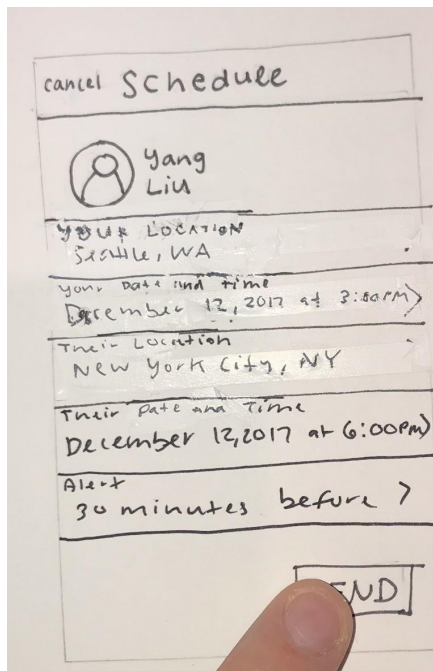 cancel Schedule
Yang
Liu
YOUR LOCATION
Seattle, WA
Your Date and Time
December 12, 2017 at 3:00PM >
Their Location
New York City, NY
Their Date and Time
December 12, 2017 at 6:00PM >
Alert
30 minutes before >
END